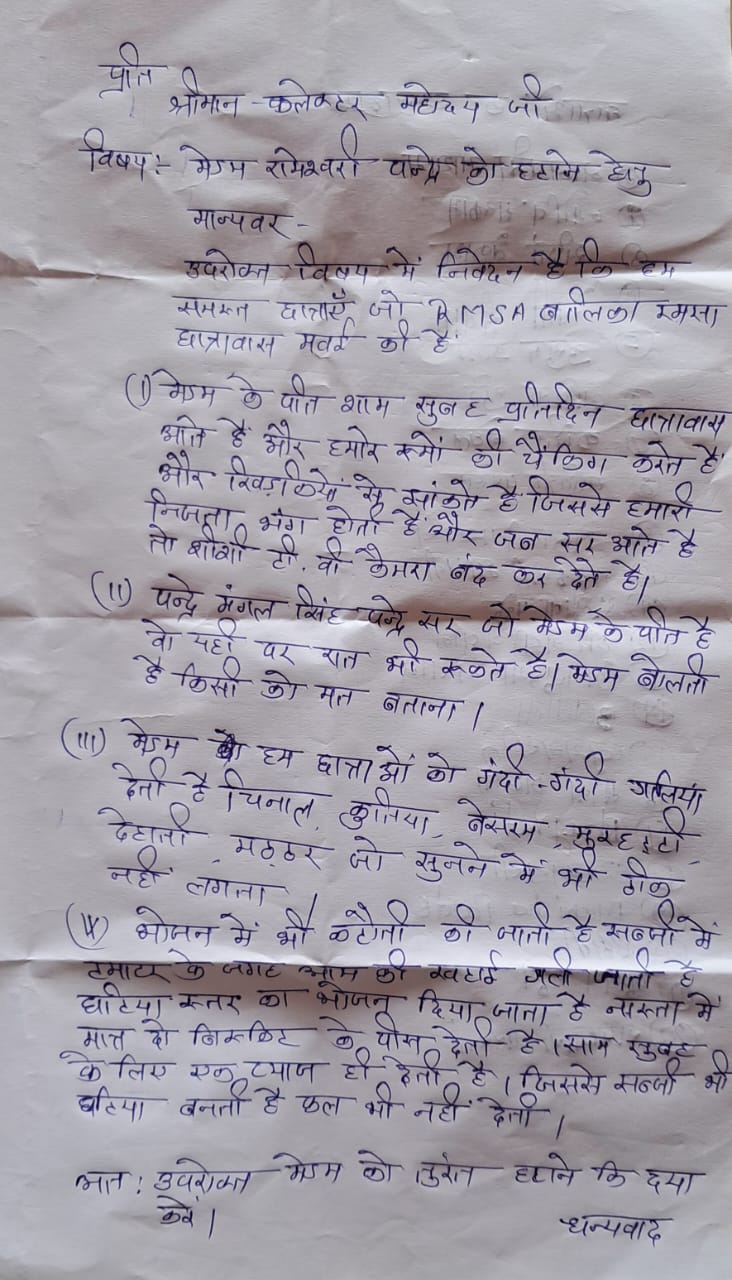 प्रति
श्रीमान - कलेक्टर महोदय जी
विषय:- मेडम रामेश्वरी पन्द्रे को हटाने हेतु
मान्यवर -
उपरोक्त विषय में निवेदन है कि हम
समस्त छात्राएँ जो RMSA बालिका रमसा
छात्रावास मवई की है
(I) मेडम के पति शाम सुबह प्रतिदिन छात्रावास
आते हैं और हमारे रूमों की चैकिंग करते है
और खिड़कियों से झांकते है जिससे हमारी
निजता भंग होती है और जब सर आते है
तो शीशी टी. वी कैमरा बंद कर देते है।
(II) पन्द्रे मंगल सिंह पन्द्रे सर जो मेडम के पति है
वो यहाँ पर रात भी रूकते है। मेडम बोलती
है किसी को मत बताना।
(III) मेडम हम छात्राओं को गंदी-गंदी गालियां
देती है चिनाल, कुतिया, बेसरम,
देहाती, मठ्ठर जो सुनने में भी ठीक
नहीं लगता।
(IV) भोजन में भी कटौती की जाती है सब्जी में
टमाटर के जगह आम की खटाई डाली जाती है
घटिया स्तर का भोजन दिया जाता है नास्ता में
मात्र दो बिस्किट के पीस देती है। साम सुबह
के लिए एक प्याज ही देती है। जिससे सब्जी भी
घटिया बनती है फल भी नहीं देती।
अत: उपरोक्त मेडम को तुरंत हटाने कि दया
करे।
धन्यवाद